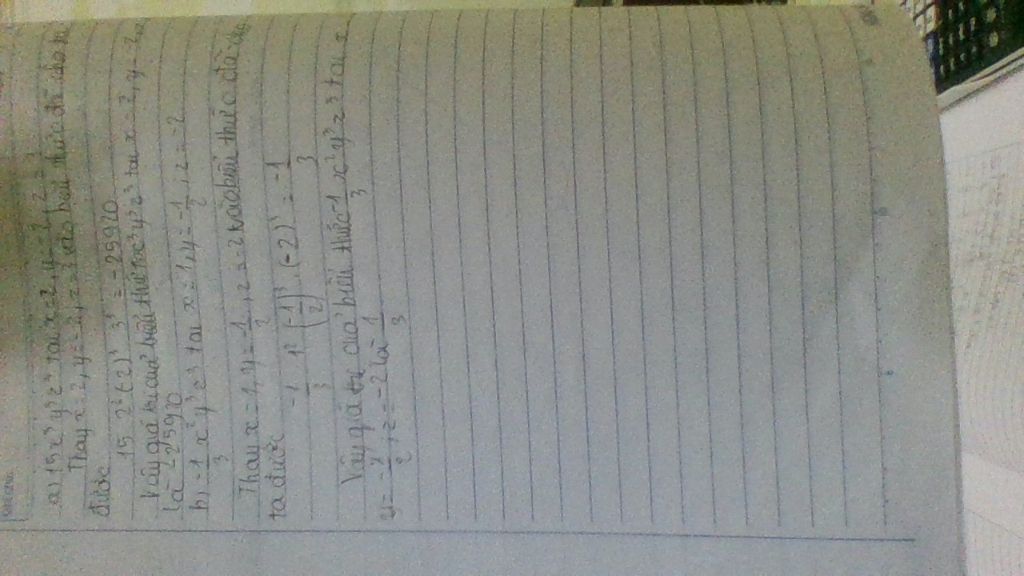 a) 15x³y³z³ tại x = 2, y = -2, z = 3
Thay x = 2, y = -2, z = 3 vào biểu thức đã cho ta
được
15 2³ (-2)³ 3³ = -25920
Vậy giá trị của biểu thức 15x³y³z³ tại x = 2, y = -2,
là -25920
b) -1/3 x²y³z³ tại x = 1, y = -1/2, z = -2
Thay x = 1, y = -1/2, z = -2 vào biểu thức đã cho
ta được
-1/3 . 1² . (-1/2)³ . (-2)³ = -1/3
Vậy giá trị của biểu thức -1/3 x²y³z³ tại x
y = -1/2, z = -2 là -1/3